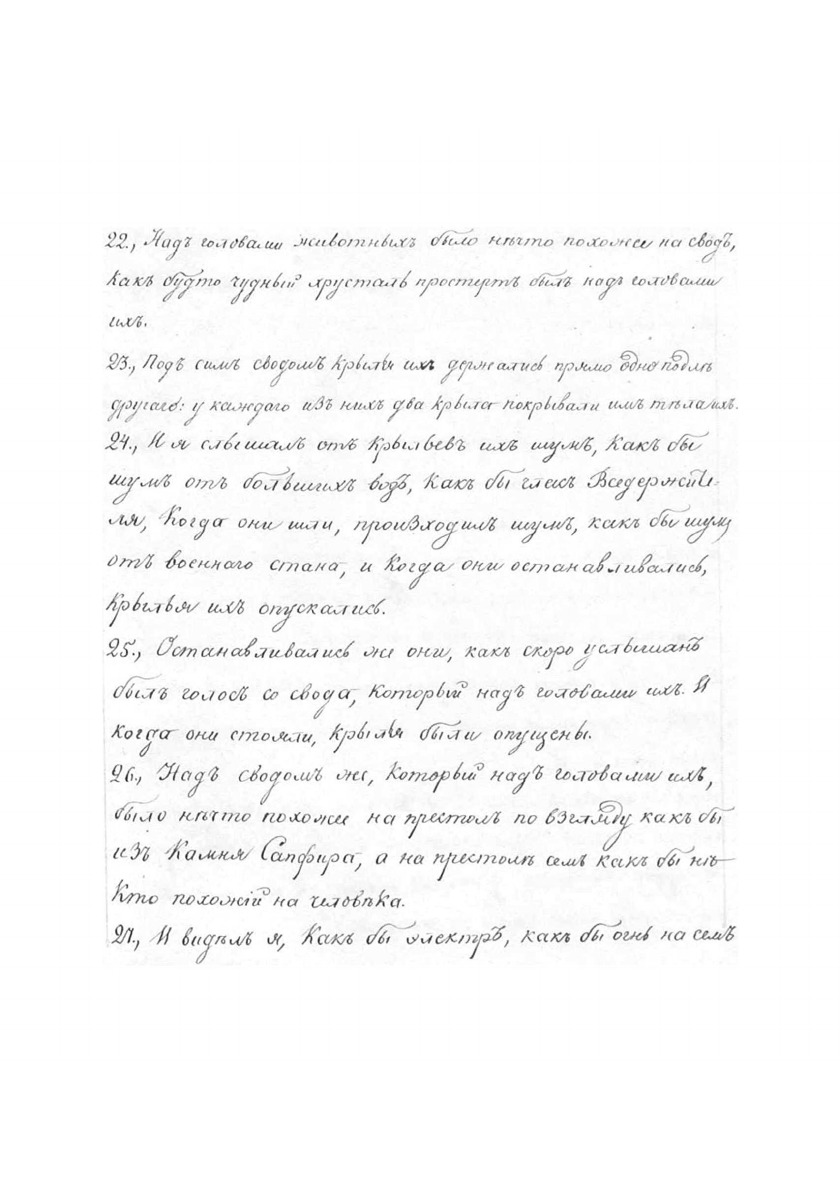 22., Надъ головами животныхъ было нѣчто похожее на сводъ,
какъ будто чудный хрусталь простертъ былъ надъ головами
ихъ.
23., Подъ симъ сводомъ крылья ихъ держались прямо одно подлѣ
другаго: у каждаго изъ нихъ два крыла покрывали имъ тѣла ихъ.
24., И я слышалъ отъ крыльевъ ихъ шумъ, Какъ бы
шумъ отъ большихъ водъ, Какъ бы гласъ Вседержите-
ля, Когда они шли, произходилъ шумъ, какъ бы шумъ
отъ военнаго стана, и Когда они останавливались,
крылья ихъ опускались.
25., Останавливались же они, какъ скоро услышанъ
былъ голосъ со свода, Который надъ головами ихъ. И
когда они стояли, крылья были опущены.
26., Надъ сводомъ же, Который надъ головами ихъ,
было нѣчто похожее на престолъ по взгляду какъ бы
изъ Камня Сапфира, а на престолѣ семъ какъ бы нѣ-
Кто похожій на человѣка.
27., И видѣлъ я, Какъ бы электръ, какъ бы огнь на семъ